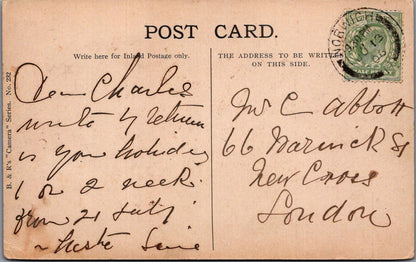 POST CARD.
Write here for Inland Postage only.
THE ADDRESS TO BE WRITTEN
ON THIS SIDE.
B. & R's "Camera" Series. No. 232
NORWICH
Dear Charlie
write by return
is your holiday
1 or 2 weeks
from 21 July
Mr C Abbott
66 Warwick St
New Cross
London